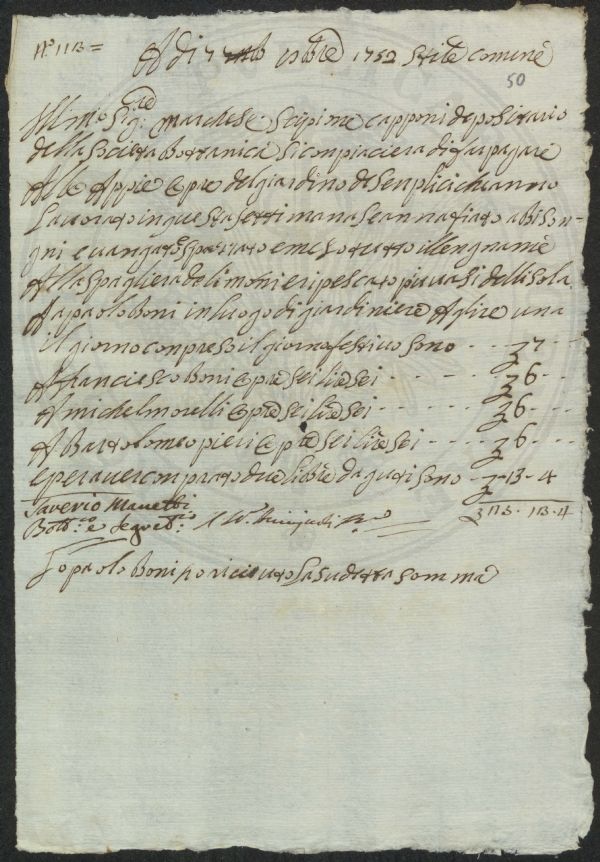 N.o 113 =
A di 7 10bre 1752 Stile comune
50
Ill.mo Sig.re Marchese Scipione capponi depositario
della Società bottanica Si conpiacierà di far pagare
Alle Appie opre del giardino de Senplici che anno
Lavorato in questa settimana Seannafiato a bison-
gni e vangato e spazzato e meso tutto illengname
Alla Spagliera de limoni e ripescato piu vasi dell isola
A paolo Boni in luogo di giardiniere A lire una
il giorno conpreso il giorno festivo sono - - 7 - -
A franciesco Boni opre sei lire sei - - - - 6 - -
A michel morelli opre sei lire sei - - - - 6 - -
A Bartolomeo pieri opre sei lire sei - - - 6 - -
e per aver conprato due libre daguti sono - 13 - 4
Saverio Manetti
Bott.co e Segret.o
Io paolo Boni ho riciuto la sudetta somma